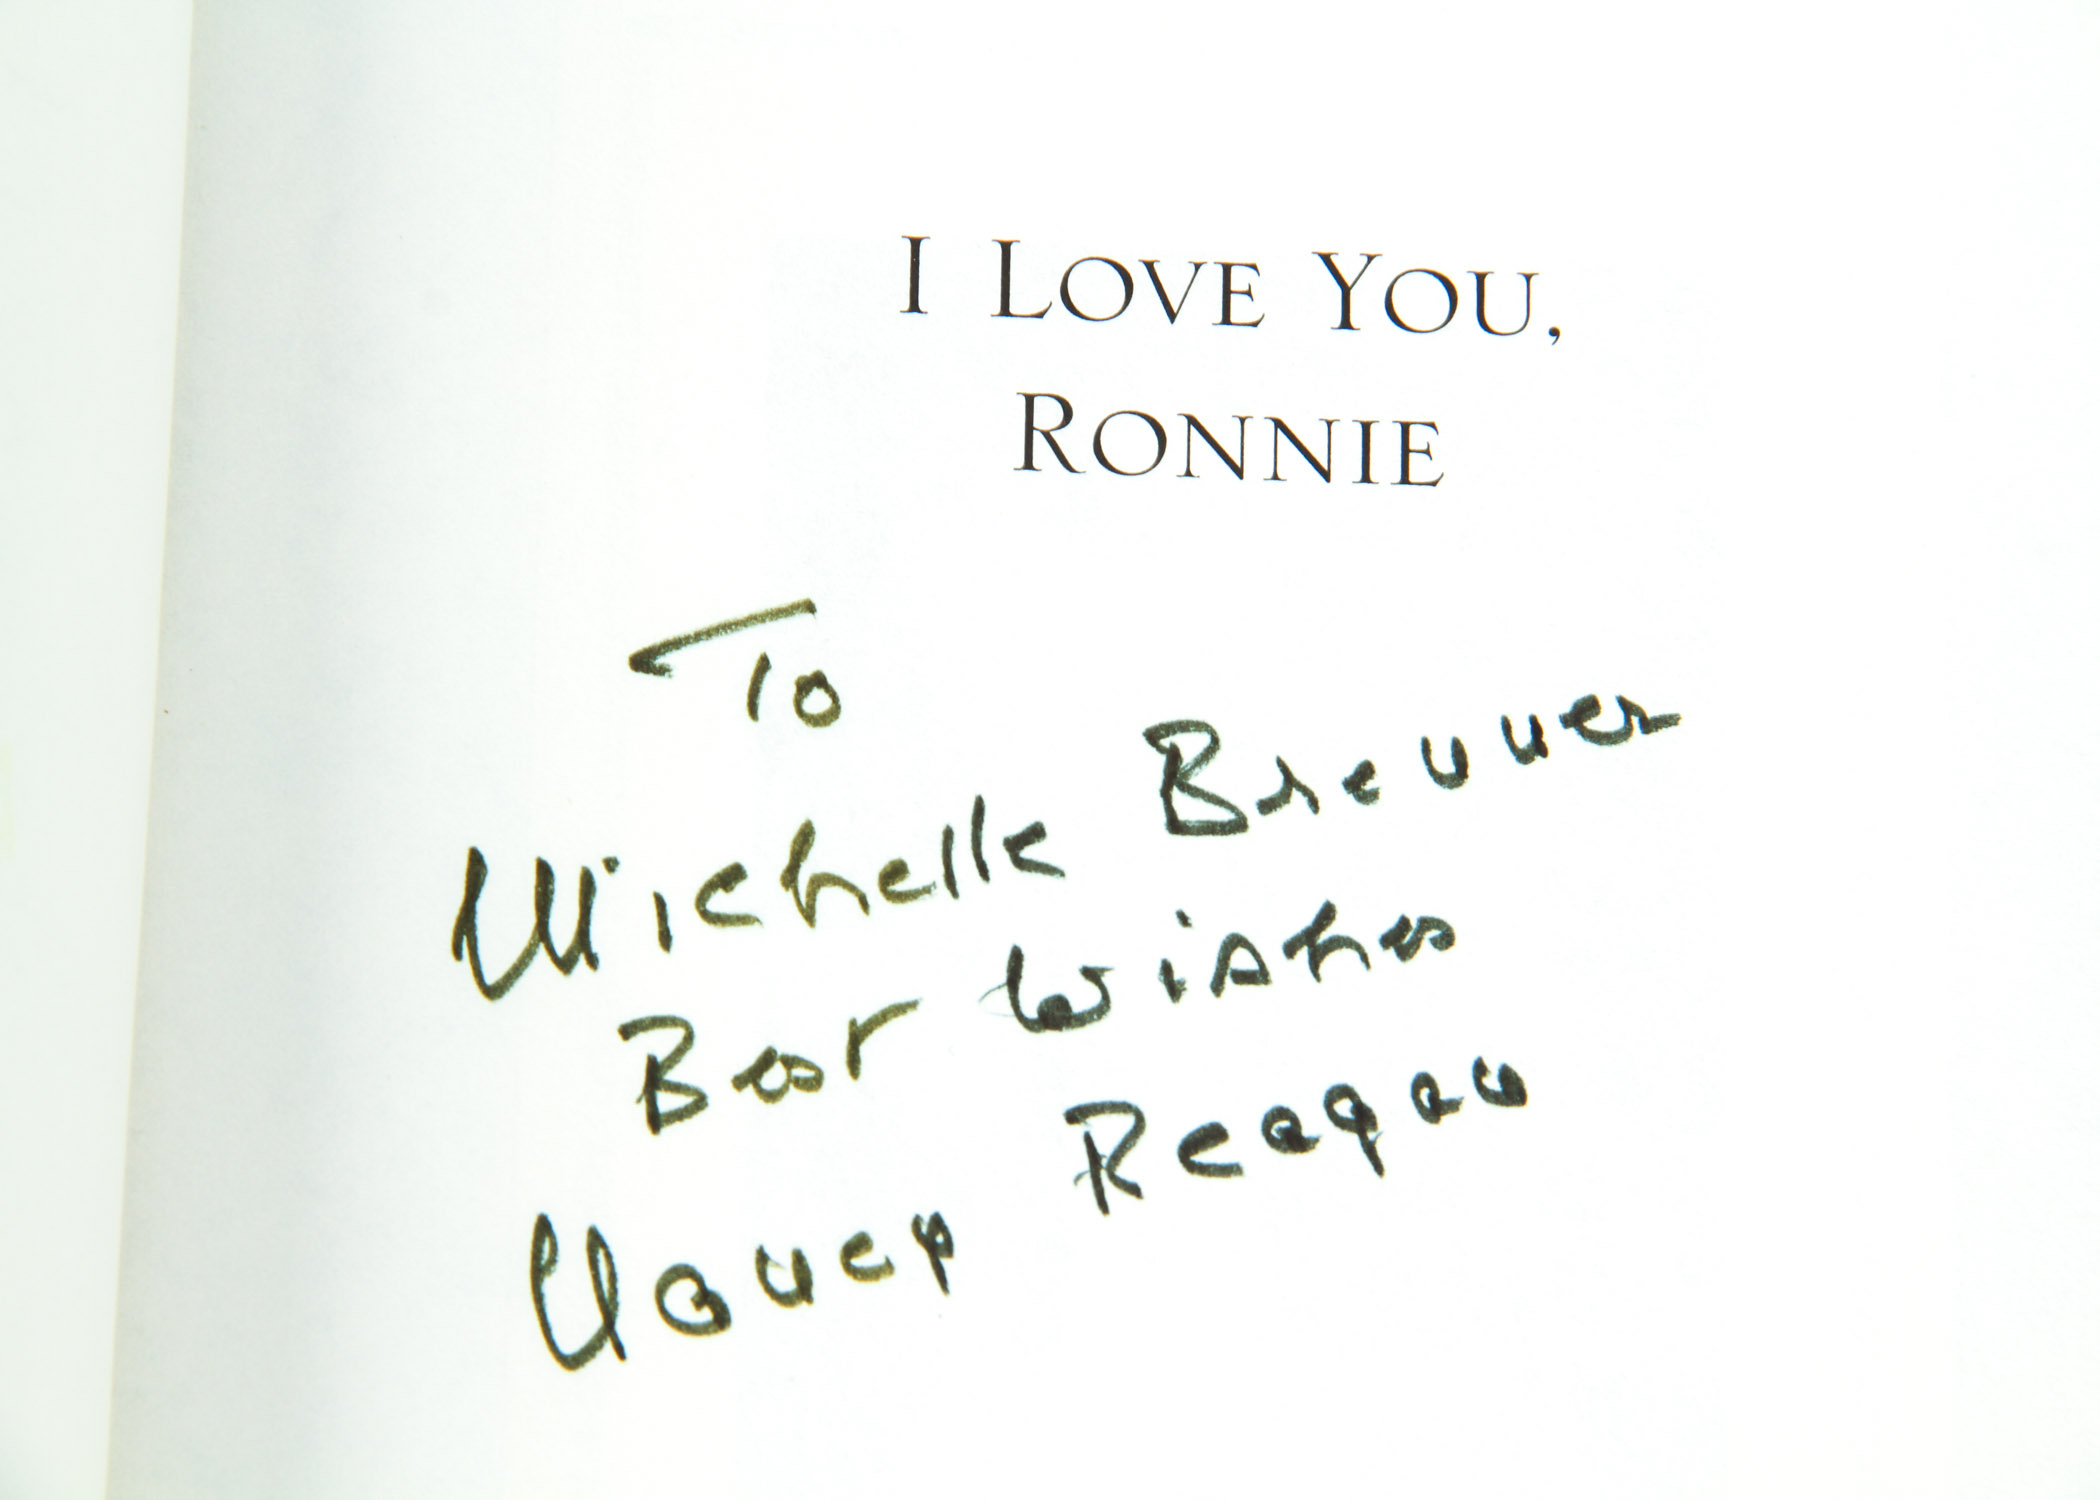 I LOVE YOU,
RONNIE
To
Michelle Brenner
Best Wishes
Nancy Reagan